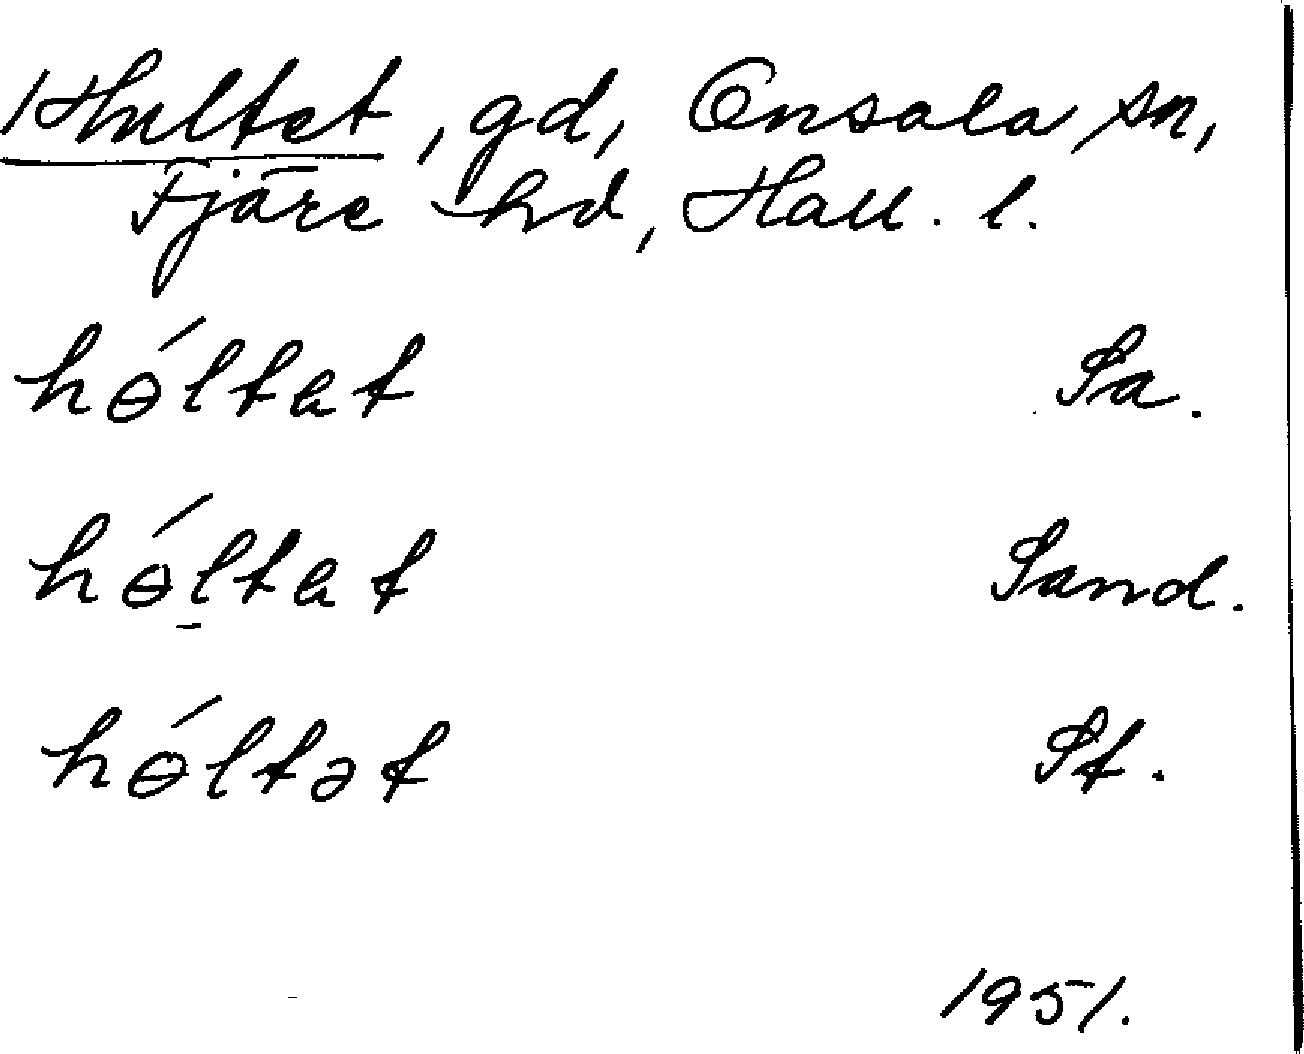 Hultet, gd, Onsala sn,
Fjäre hd, Hall. l.
hɵ́ltat Sa.
hɵ́ltat Sand.
hɵ́ltət St.
1951.